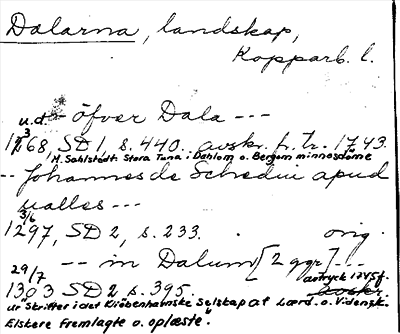 Dalarna, landskap,
Kopparb. l.
u.d. -- öfver Dala ---
1268, SD 1, s. 440. avskr. fr. tr. 1743.
M. Sahlstedt: Stora Tuna i Dahlom o. Bergom minnesdöme
-- Johannes de Schedui apud
ualles ---
3/6
1297, SD 2, s. 233. orig.
-- in Dalum [2 ggr] ---
29/7 avtryck 1745 f.
1303 SD 2, s. 395.
ur "Skrifter i det Kiöbenhavnske Selskap af Lærd. o. Vidensk.
Elskere fremlagte o. oplæste".